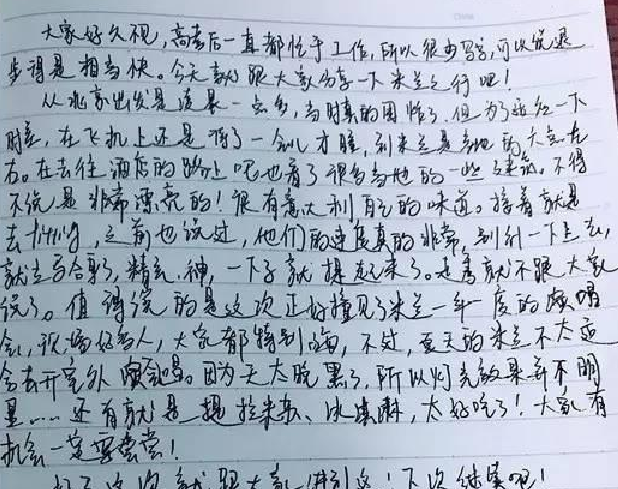 大家好久不见，高考后一直都忙于工作，所以很少写字，可以说退
步得是相当快。今天就跟大家分享一下米兰之行吧！
从北京出发是凌晨一点多，当时真的困惨了，但为了适应一下
时差，在飞机上还是撑了一会儿才睡，到米兰是当地的大点左
右。在去往酒店的路上呢也看了很多当地的一些建筑。不得
不说是非常漂亮的！很有意大利自己的味道。接着就是
去fitting，之前也说过，他们的速度真的非常，别针一下上去，
就立马合身了，精气神，一下子就提起来了。走秀就不跟大家
说了。值得说的是这次正好撞见了米兰一年一度的演唱
会，现场好多人，大家都特别嗨，不过，夏天的米兰不太适
合去开室外演唱会。因为天太晚黑了，所以灯光效果并不明
显……还有就是提拉米苏、冰淇淋，太好吃了！大家有
机会一定要尝尝！
这次就跟大家讲到这！下次继续吧！